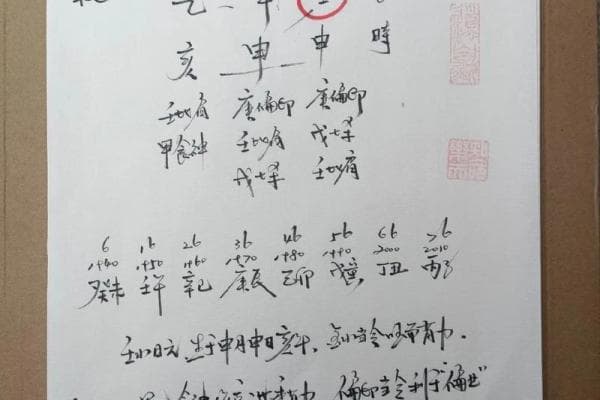 亥 申 申 時
壬比肩 庚偏印 庚偏印
甲食神 壬比肩 戊七杀
戊七杀 壬比肩
6 16 26 36 46 56 66 76
1940 1950 1960 1970 1980 1990 2000 2010
癸未 壬午 辛巳 庚辰 己卯 戊寅 丁丑 丙子
壬水日元生于申月申日亥年,金水当令旺而有力.
偏印当令利于"偏业"